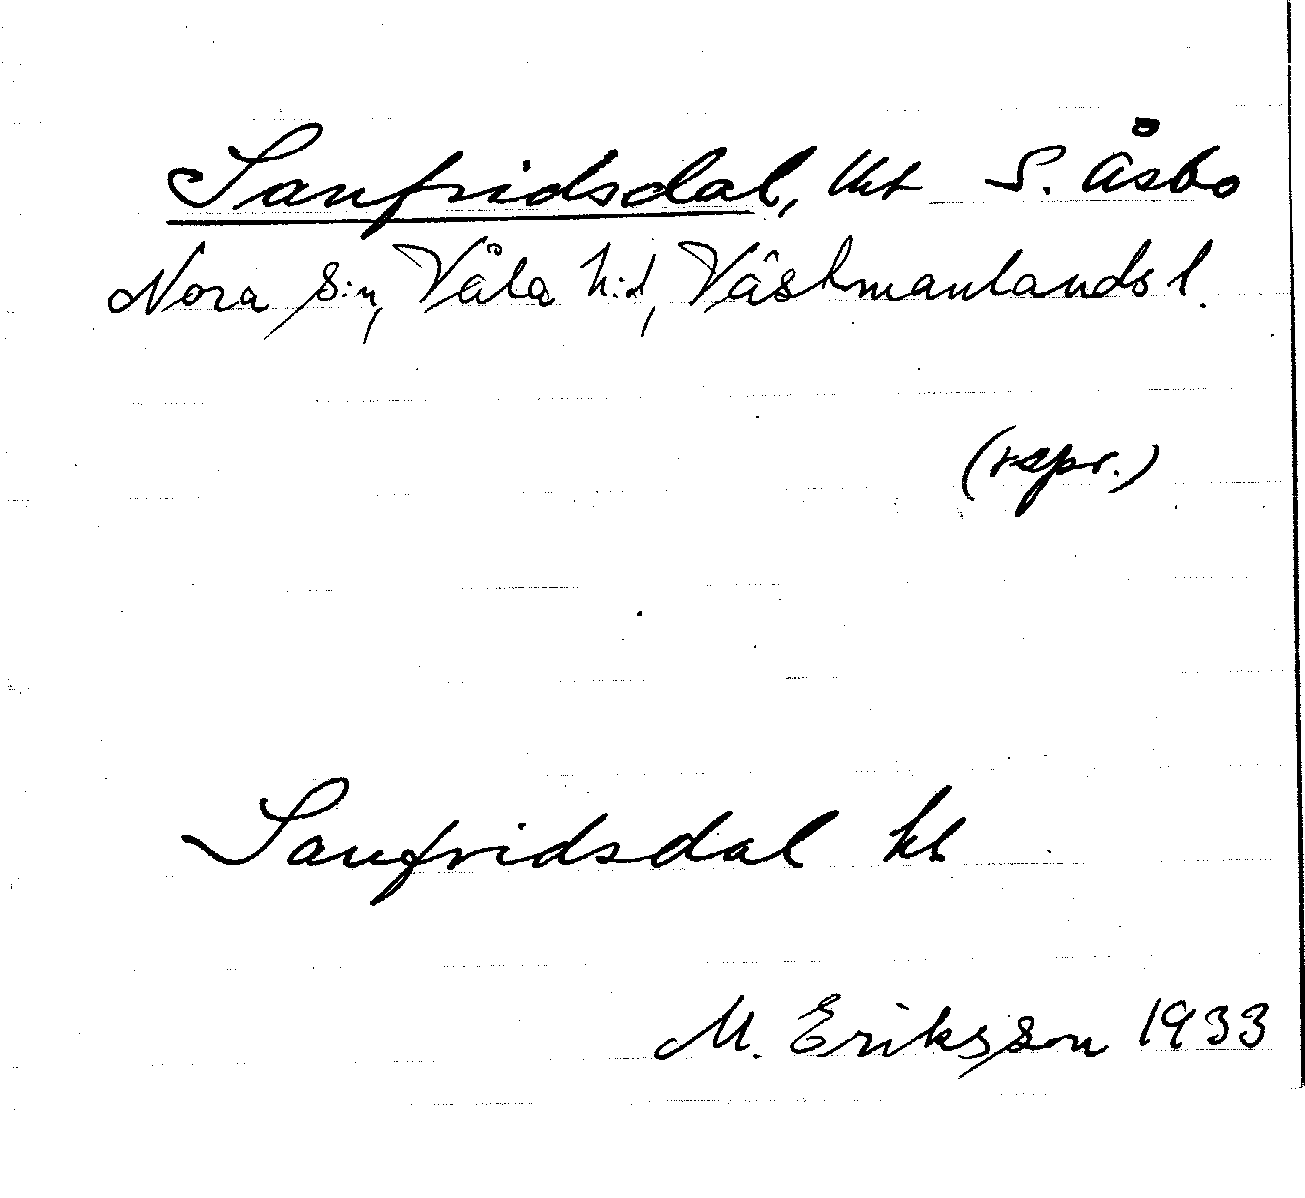 Sanfridsdal, tht S. Åsbo
Nora s:n, Våla h:d, Västmanlands l.
(rspr.)
Sanfridsdal ht
M. Eriksson 1933